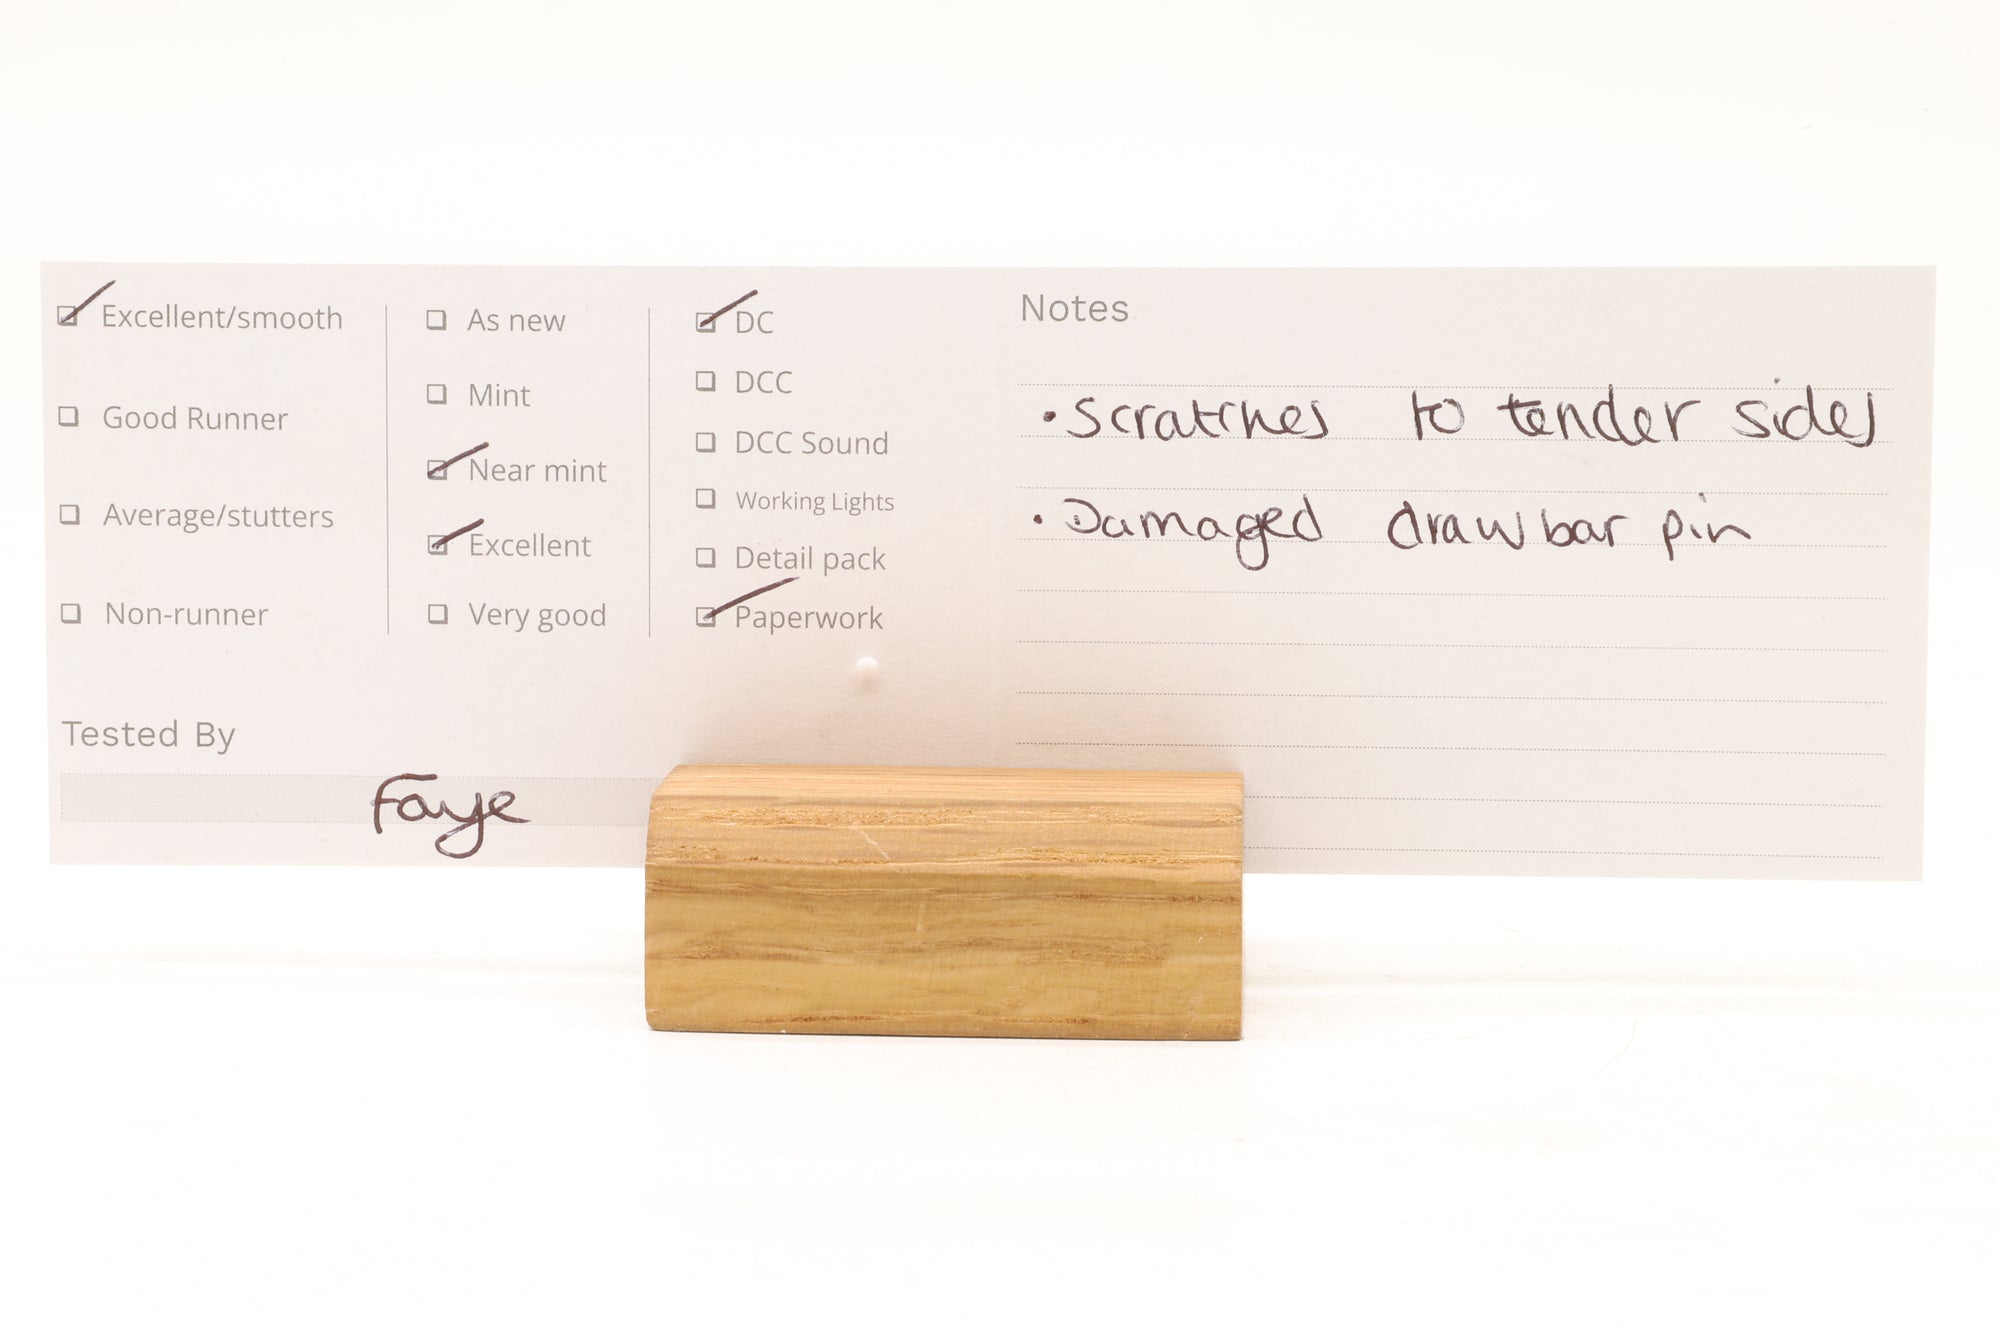 Excellent/smooth
Good Runner
Average/stutters
Non-runner
As new
Mint
Near mint
Excellent
Very good
DC
DCC
DCC Sound
Working Lights
Detail pack
Paperwork
Tested By
Faye
Notes
• Scratches to tender sides
• Damaged drawbar pin